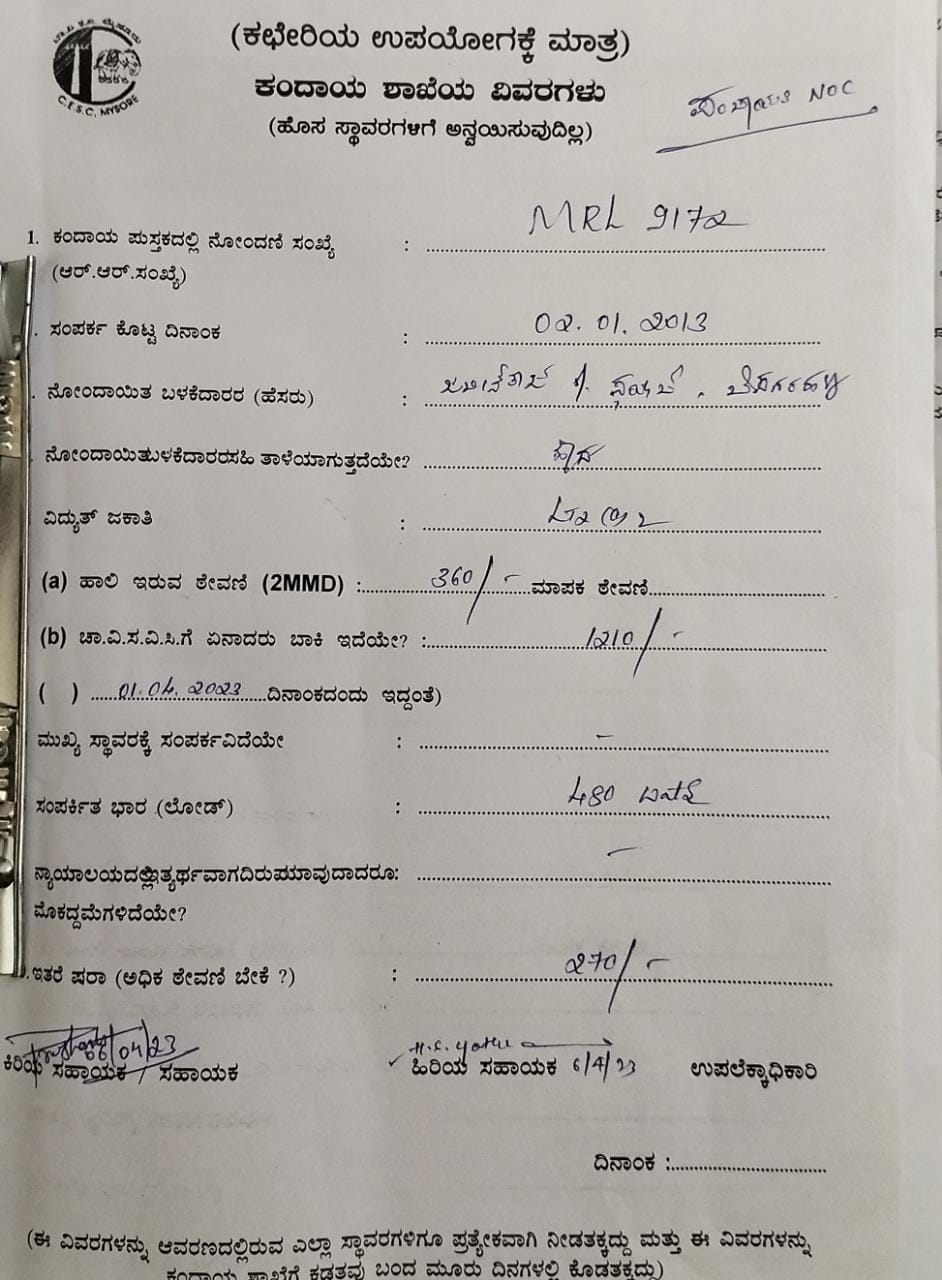 C.E.S.C. MYSORE
(ಕಛೇರಿಯ ಉಪಯೋಗಕ್ಕೆ ಮಾತ್ರ)
ಕಂದಾಯ ಶಾಖೆಯ ವಿವರಗಳು
(ಹೊಸ ಸ್ಥಾವರಗಳಿಗೆ ಅನ್ವಯಿಸುವುದಿಲ್ಲ)
NOC
1. ಕಂದಾಯ ಪುಸ್ತಕದಲ್ಲಿ ನೋಂದಣಿ ಸಂಖ್ಯೆ : MRL 9172
(ಆರ್.ಆರ್.ಸಂಖ್ಯೆ)
. ಸಂಪರ್ಕ ಕೊಟ್ಟ ದಿನಾಂಕ : 02.01.2013
. ನೋಂದಾಯಿತ ಬಳಕೆದಾರರ (ಹೆಸರು) :
. ನೋಂದಾಯಿತಬಳಕೆದಾರರಸಹಿ ತಾಳೆಯಾಗುತ್ತದೆಯೇ? ಹೌದು
ವಿದ್ಯುತ್ ಜಕಾತಿ :
(a) ಹಾಲಿ ಇರುವ ಠೇವಣಿ (2MMD) : 360/- ಮಾಪಕ ಠೇವಣಿ
(b) ಚಾ.ವಿ.ಸ.ವಿ.ಸಿ.ಗೆ ಏನಾದರು ಬಾಕಿ ಇದೆಯೇ? : 1210/-
( ) 01.04.2023 ದಿನಾಂಕದಂದು ಇದ್ದಂತೆ)
ಮುಖ್ಯ ಸ್ಥಾವರಕ್ಕೆ ಸಂಪರ್ಕವಿದೆಯೇ : -
ಸಂಪರ್ಕಿತ ಭಾರ (ಲೋಡ್) : 480 ವ್ಯಾಟ್ಸ್
: -
ಮೊಕದ್ದಮೆಗಳಿದೆಯೇ?
. ಇತರೆ ಷರಾ (ಅಧಿಕ ಠೇವಣಿ ಬೇಕೆ ?) : 270/-
06/04/23
ಕಿರಿಯ ಸಹಾಯಕ / ಸಹಾಯಕ ಹಿರಿಯ ಸಹಾಯಕ 6/4/23 ಉಪಲೆಕ್ಕಾಧಿಕಾರಿ
ದಿನಾಂಕ :
(ಈ ವಿವರಗಳನ್ನು ಆವರಣದಲ್ಲಿರುವ ಎಲ್ಲಾ ಸ್ಥಾವರಗಳಿಗೂ ಪ್ರತ್ಯೇಕವಾಗಿ ನೀಡತಕ್ಕದ್ದು ಮತ್ತು ಈ ವಿವರಗಳನ್ನು
ಕಂದಾಯ ಶಾಖೆಗೆ ಕಡತವು ಬಂದ ಮೂರು ದಿನಗಳಲ್ಲಿ ಕೊಡತಕ್ಕದ್ದು)